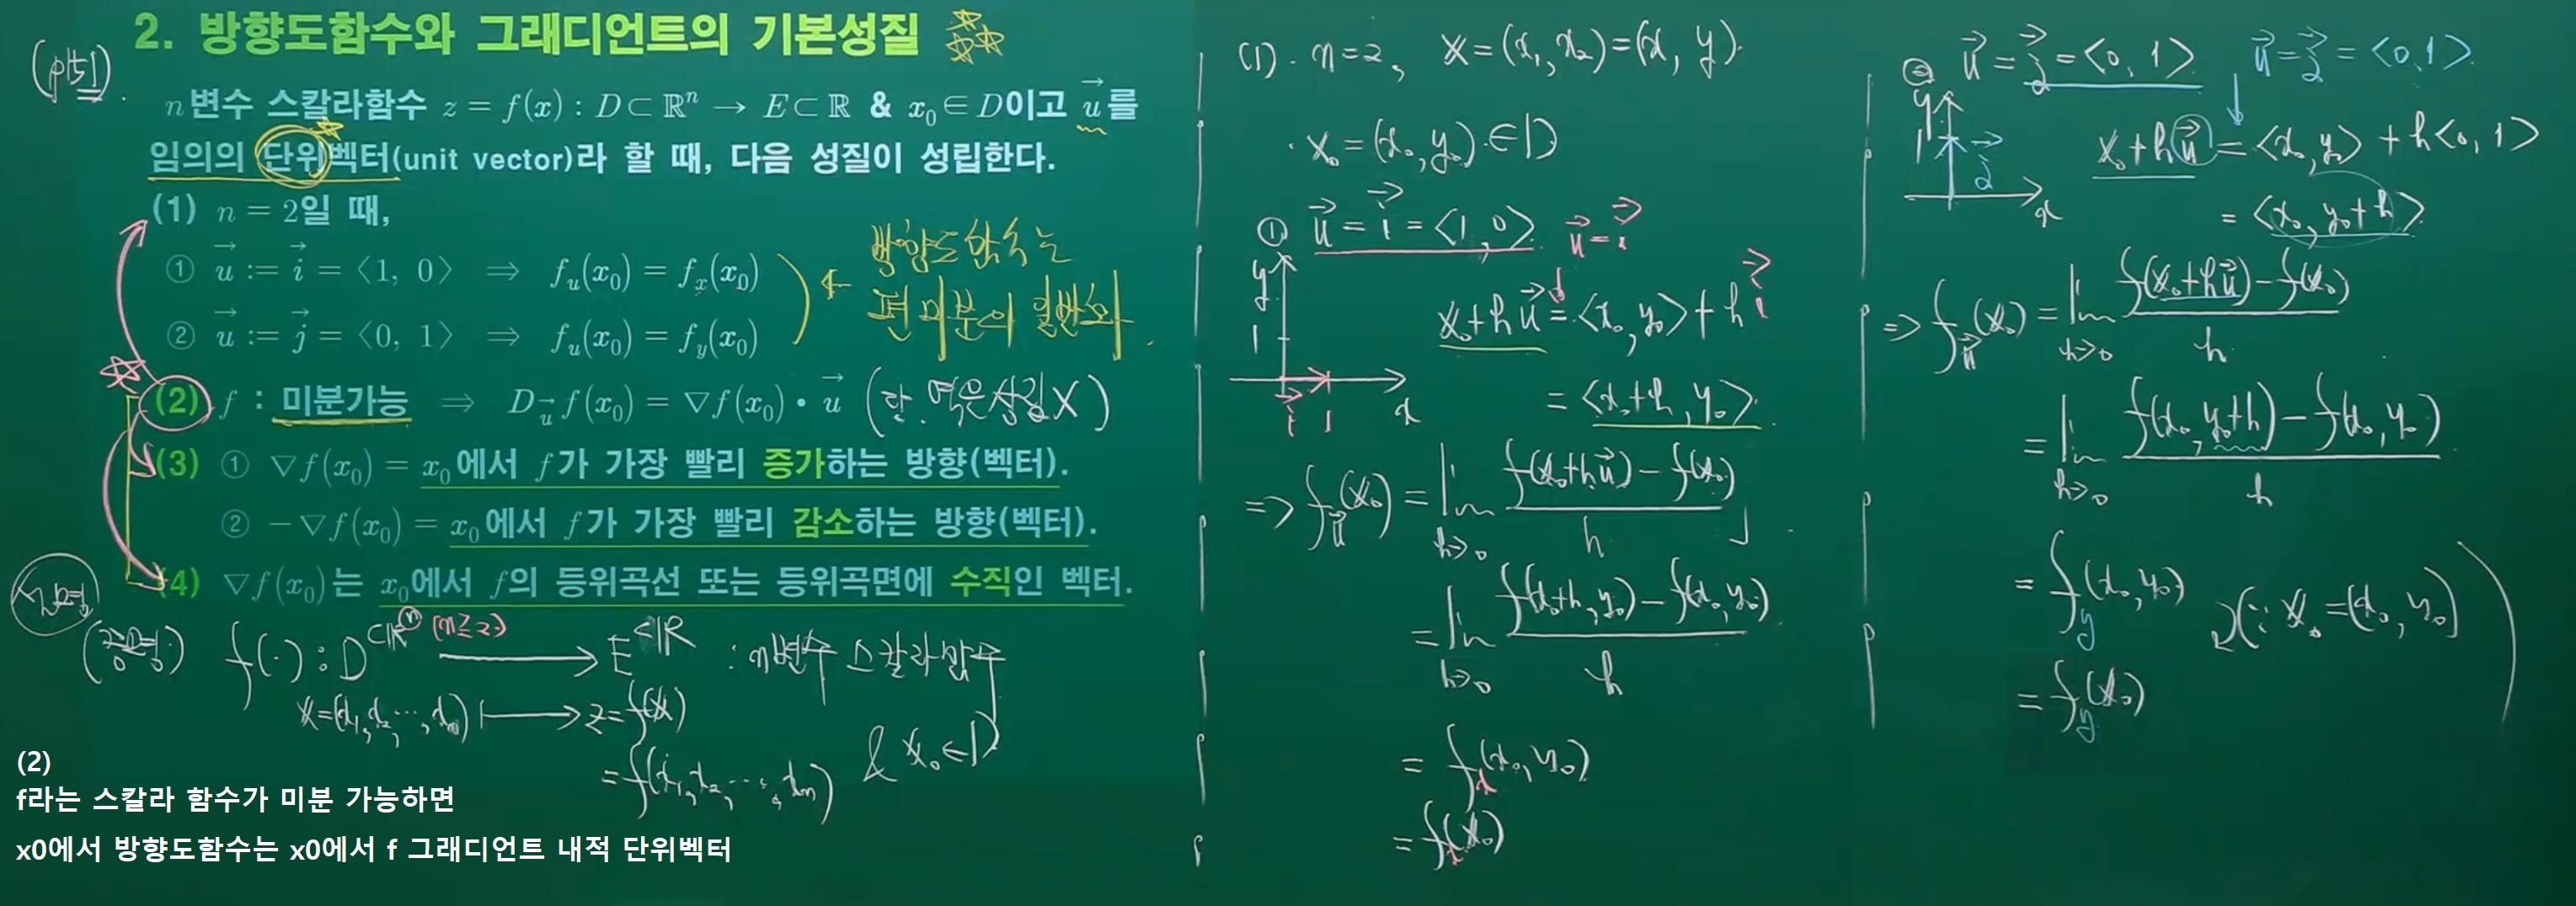 2. 방향도함수와 그래디언트의 기본성질
(p151).
n변수 스칼라함수 z = f(x) : D⊂ℝⁿ → E⊂ℝ & x₀∈D이고 u⃗를
임의의 단위벡터(unit vector)라 할 때, 다음 성질이 성립한다.
(1) n = 2일 때,
① u⃗ := i⃗ = ⟨1, 0⟩ ⇒ f_u(x₀) = f_x(x₀)
② u⃗ := j⃗ = ⟨0, 1⟩ ⇒ f_u(x₀) = f_y(x₀)
← 방향도함수는
편미분의 일반화.
(2) f : 미분가능 ⇒ D_u⃗ f(x₀) = ∇f(x₀) • u⃗ (단, 역은 성립 X)
(3) ① ∇f(x₀) = x₀에서 f가 가장 빨리 증가하는 방향(벡터).
② −∇f(x₀) = x₀에서 f가 가장 빨리 감소하는 방향(벡터).
(4) ∇f(x₀)는 x₀에서 f의 등위곡선 또는 등위곡면에 수직인 벡터.
설명
(증명) f(·) : D⊂ℝⁿ (n≥2) → E⊂ℝ : n변수 스칼라함수
x=(x₁,x₂,⋯,xₙ) ↦ z=f(x)
=f(x₁,x₂,⋯,xₙ) & x₀∈D
(2)
f라는 스칼라 함수가 미분 가능하면
x0에서 방향도함수는 x0에서 f 그래디언트 내적 단위벡터
(1). n=2, x=(x₁,x₂)=(x, y).
· x₀=(x₀,y₀)∈D
① u⃗=i⃗=⟨1,0⟩ u⃗=i⃗
y
1
i⃗ 1 x
x₀+hu⃗=⟨x₀,y₀⟩+hi⃗
=⟨x₀+h,y₀⟩
⇒ f_u⃗(x₀)=lim_{h→0} (f(x₀+hu⃗)−f(x₀))/h
=lim_{h→0} (f(x₀+h,y₀)−f(x₀,y₀))/h
=f_x(x₀,y₀)
=f_x(x₀)
② u⃗=j⃗=⟨0,1⟩ u⃗=j⃗=⟨0,1⟩.
y
1
j⃗
x
x₀+hu⃗=⟨x₀,y₀⟩+h⟨0,1⟩
=⟨x₀,y₀+h⟩
⇒ f_u⃗(x₀)=lim_{h→0} (f(x₀+hu⃗)−f(x₀))/h
=lim_{h→0} (f(x₀,y₀+h)−f(x₀,y₀))/h
=f_y(x₀,y₀)
(∵ x₀=(x₀,y₀))
=f_y(x₀)